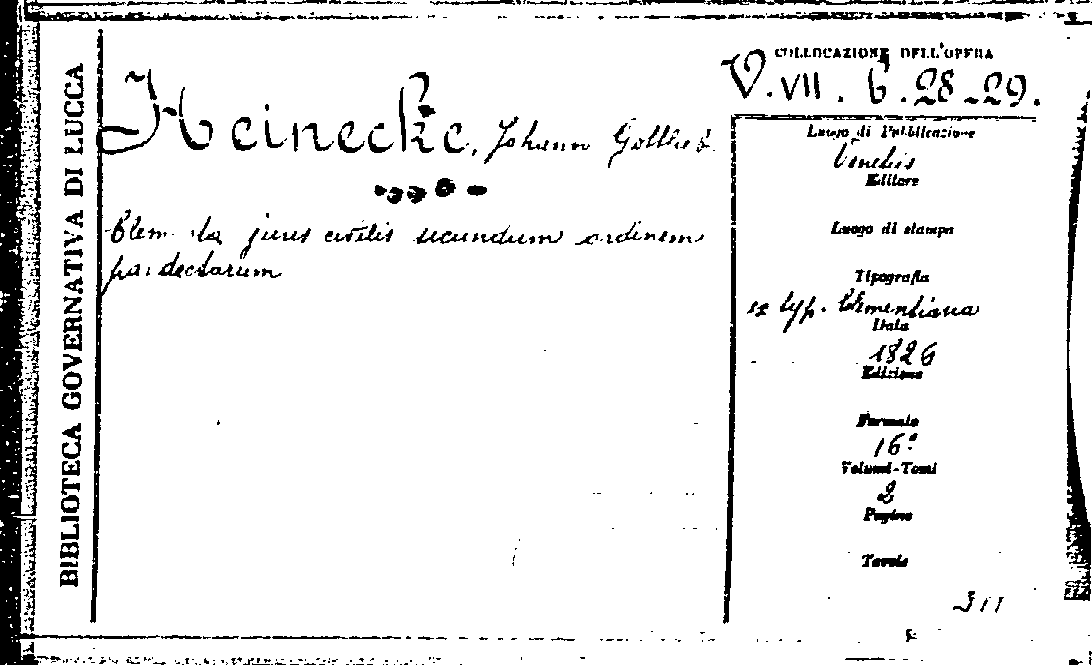 BIBLIOTECA GOVERNATIVA DI LUCCA
Heinecke, Johann Gottlieb
Elementa juris civilis secundum ordinem
pandectarum
COLLOCAZIONE DELL'OPERA
V. VII. b. 28-29.
Luogo di Pubblicazione
Venetiis
Editore
Luogo di stampa
Tipografia
ex typ. Clementiana
Data
1826
Edizione
Formato
16º
Volumi-Tomi
2
Pagine
Tavole
311